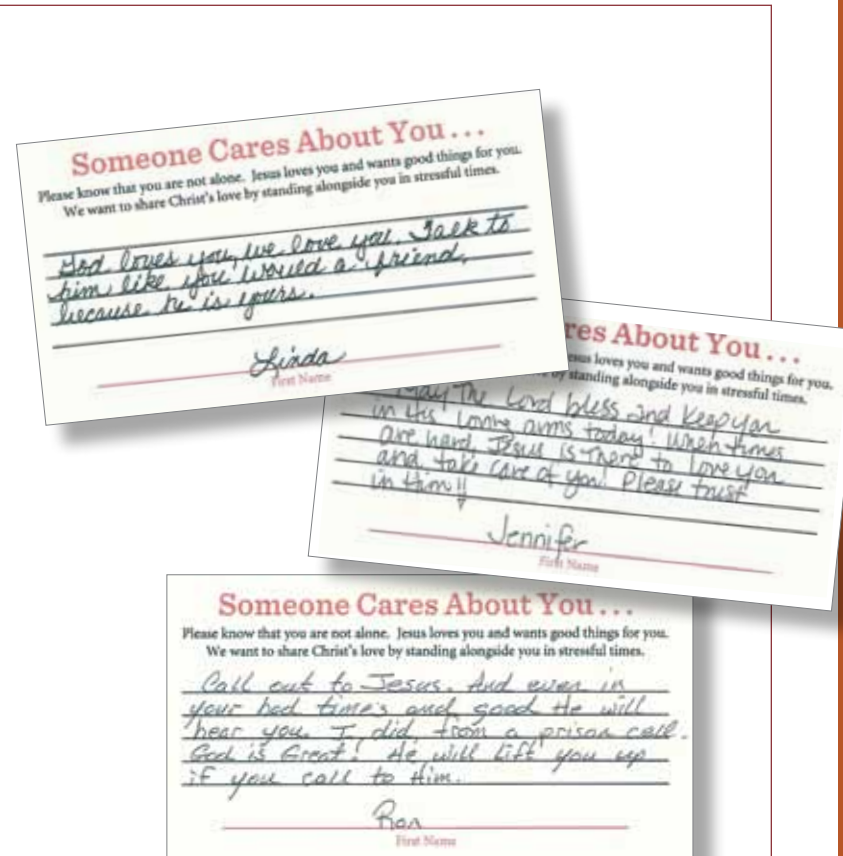 Someone Cares About You...
Please know that you are not alone. Jesus loves you and wants good things for you.
We want to share Christ's love by standing alongside you in stressful times.
God loves you, we love you. Talk to
him like you would a friend,
because he is yours.
Linda
First Name
res About You...
esus loves you and wants good things for you.
by standing alongside you in stressful times.
May The Lord bless and Keep you
in His loving arms today! When times
are hard, Jesus is There to love you
and take care of you. Please trust
in Him!!
Jennifer
First Name
Someone Cares About You...
Please know that you are not alone. Jesus loves you and wants good things for you.
We want to share Christ's love by standing alongside you in stressful times.
Call out to Jesus. And even in
your bad time's and good He will
hear you. I did, from a prison cell.
God is Great! He will lift you up
if you call to Him.
Ron
First Name